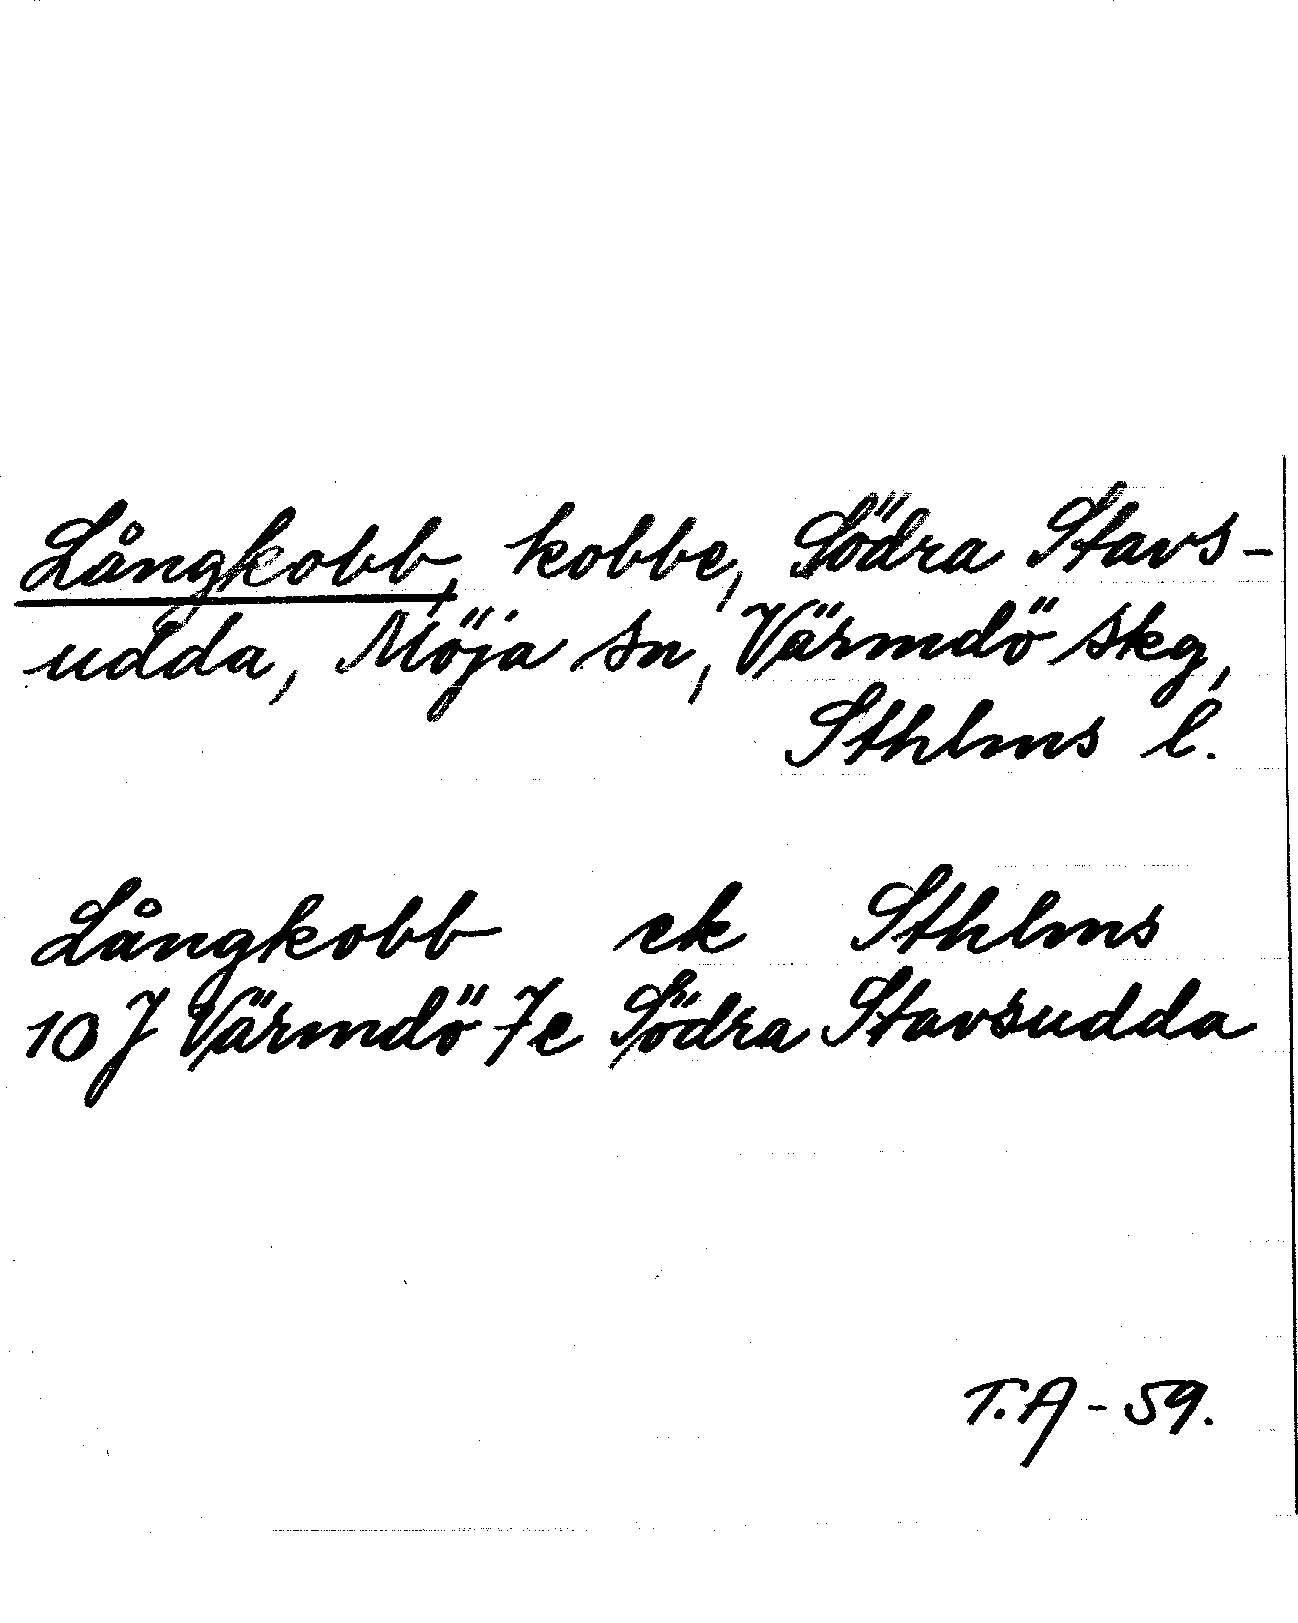 Långkobb, kobbe, Södra Stavs-
udda, Möja sn, Värmdö skg,
Sthlms l.
Långkobb ek Sthlms
10 J Värmdö 7e Södra Stavsudda
T.A - 59.